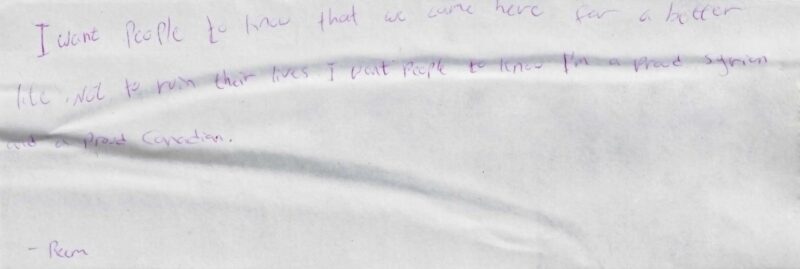 I want People to know that we came here for a better
life. Not to ruin their lives I want People to know I'm a proud syrian
and a proud Canadian.
- Reem